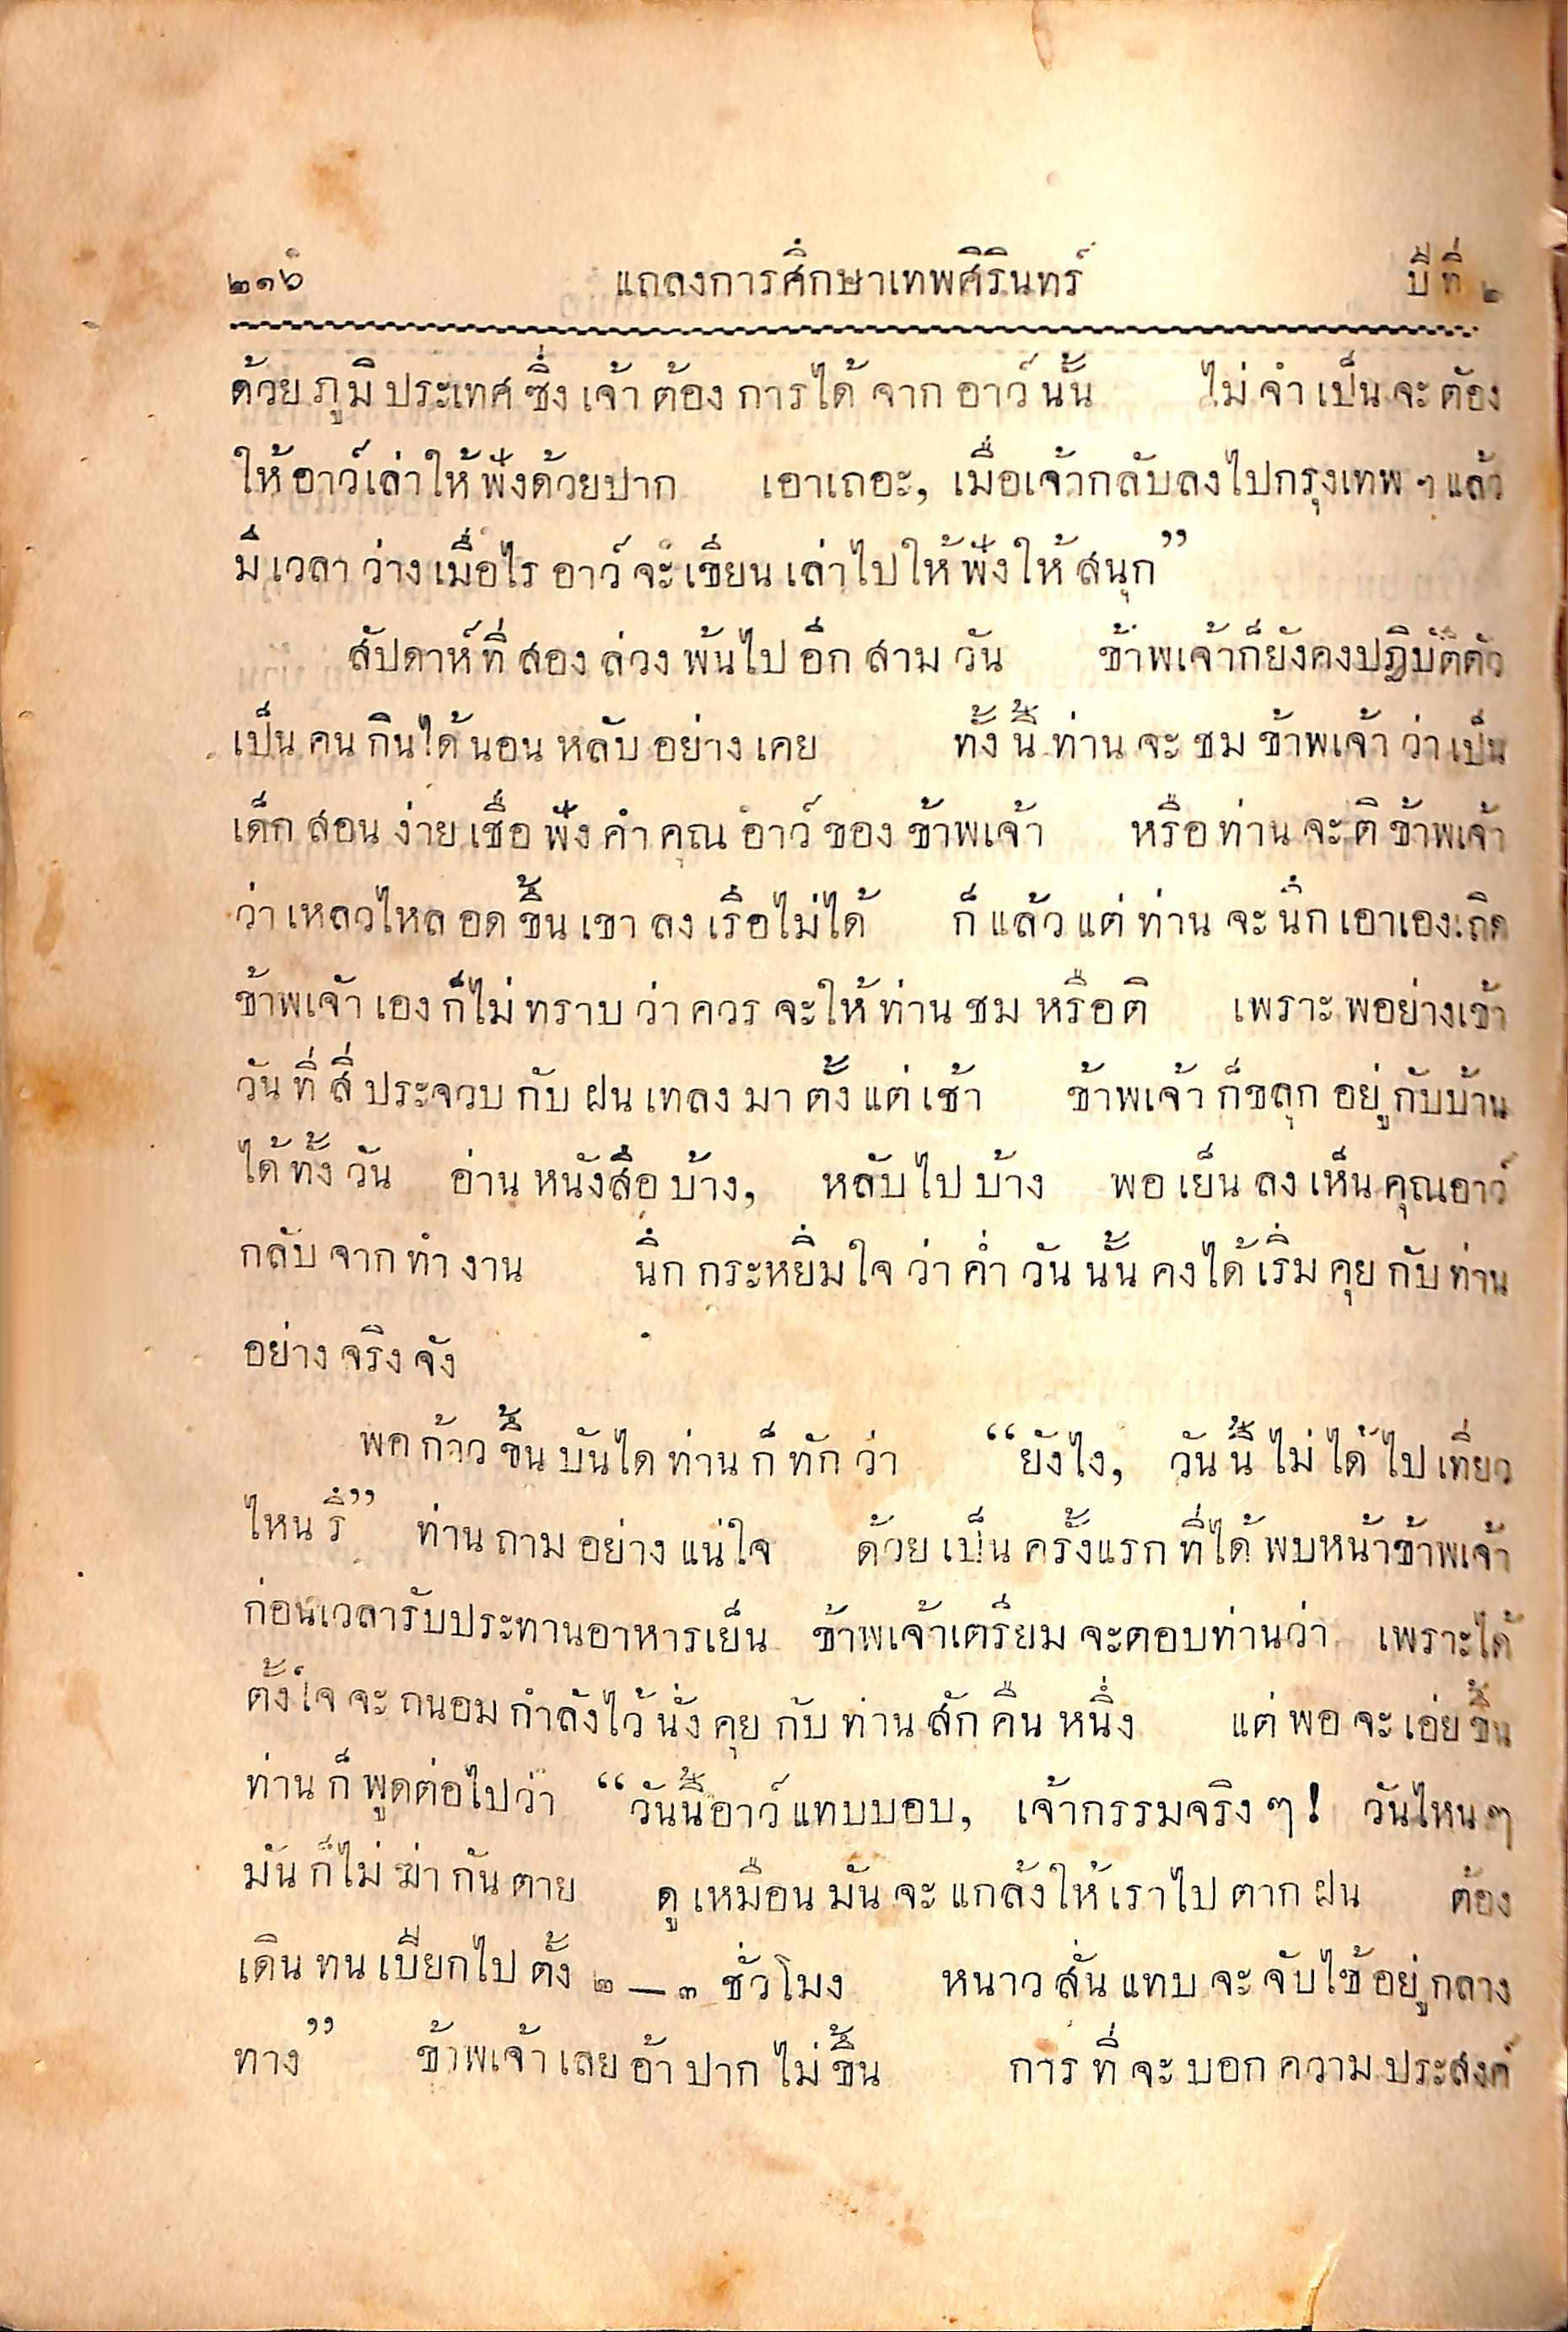 ๒๑๖ แถลงการศึกษาเทพศิรินทร์ ปีที่ ๒
ด้วยภูมิประเทศซึ่งเจ้าต้องการได้จากอาว์นั้น ไม่จำเป็นจะต้อง
ให้อาว์เล่าให้ฟังด้วยปาก เอาเถอะ, เมื่อเจ้ากลับลงไปกรุงเทพ ฯ แล้ว
มีเวลาว่างเมื่อไรอาว์จะเขียนเล่าไปให้ฟังให้สนุก”
สัปดาห์ที่สองล่วงพ้นไปอีกสามวัน ข้าพเจ้าก็ยังคงปฏิบัติตัว
เป็นคนกินได้นอนหลับอย่างเคย ทั้งนี้ท่านจะชมข้าพเจ้าว่าเป็น
เด็กสอนง่ายเชื่อฟังคำคุณอาว์ของข้าพเจ้า หรือท่านจะติข้าพเจ้า
ว่าเหลวไหลอดขึ้นเขาลงเรือไม่ได้ ก็แล้วแต่ท่านจะนึกเอาเองเถิด
ข้าพเจ้าเองก็ไม่ทราบว่าควรจะให้ท่านชมหรือติ เพราะพอย่างเข้า
วันที่สี่ประจวบกับฝนเทลงมาตั้งแต่เช้า ข้าพเจ้าก็ขลุกอยู่กับบ้าน
ได้ทั้งวัน อ่านหนังสือบ้าง, หลับไปบ้าง พอเย็นลงเห็นคุณอาว์
กลับจากทำงาน นึกกระหยิ่มใจว่าค่ำวันนั้นคงได้เริ่มคุยกับท่าน
อย่างจริงจัง
พอก้าวขึ้นบันไดท่านก็ทักว่า “ยังไง, วันนี้ไม่ได้ไปเที่ยว
ไหนรึ” ท่านถามอย่างแน่ใจ ด้วยเป็นครั้งแรกที่ได้พบหน้าข้าพเจ้า
ก่อนเวลารับประทานอาหารเย็น ข้าพเจ้าเตรียมจะตอบท่านว่า เพราะได้
ตั้งใจจะถนอมกำลังไว้นั่งคุยกับท่านสักคืนหนึ่ง แต่พอจะเอ่ยขึ้น
ท่านก็พูดต่อไปว่า “วันนี้อาว์แทบบอบ, เจ้ากรรมจริง ๆ! วันไหน ๆ
มันก็ไม่ฆ่ากันตาย ดูเหมือนมันจะแกล้งให้เราไปตากฝน ต้อง
เดินทนเปียกไปตั้ง ๒—๓ ชั่วโมง หนาวสั่นแทบจะจับไข้อยู่กลาง
ทาง” ข้าพเจ้าเลยอ้าปากไม่ขึ้น การที่จะบอกความประสงค์